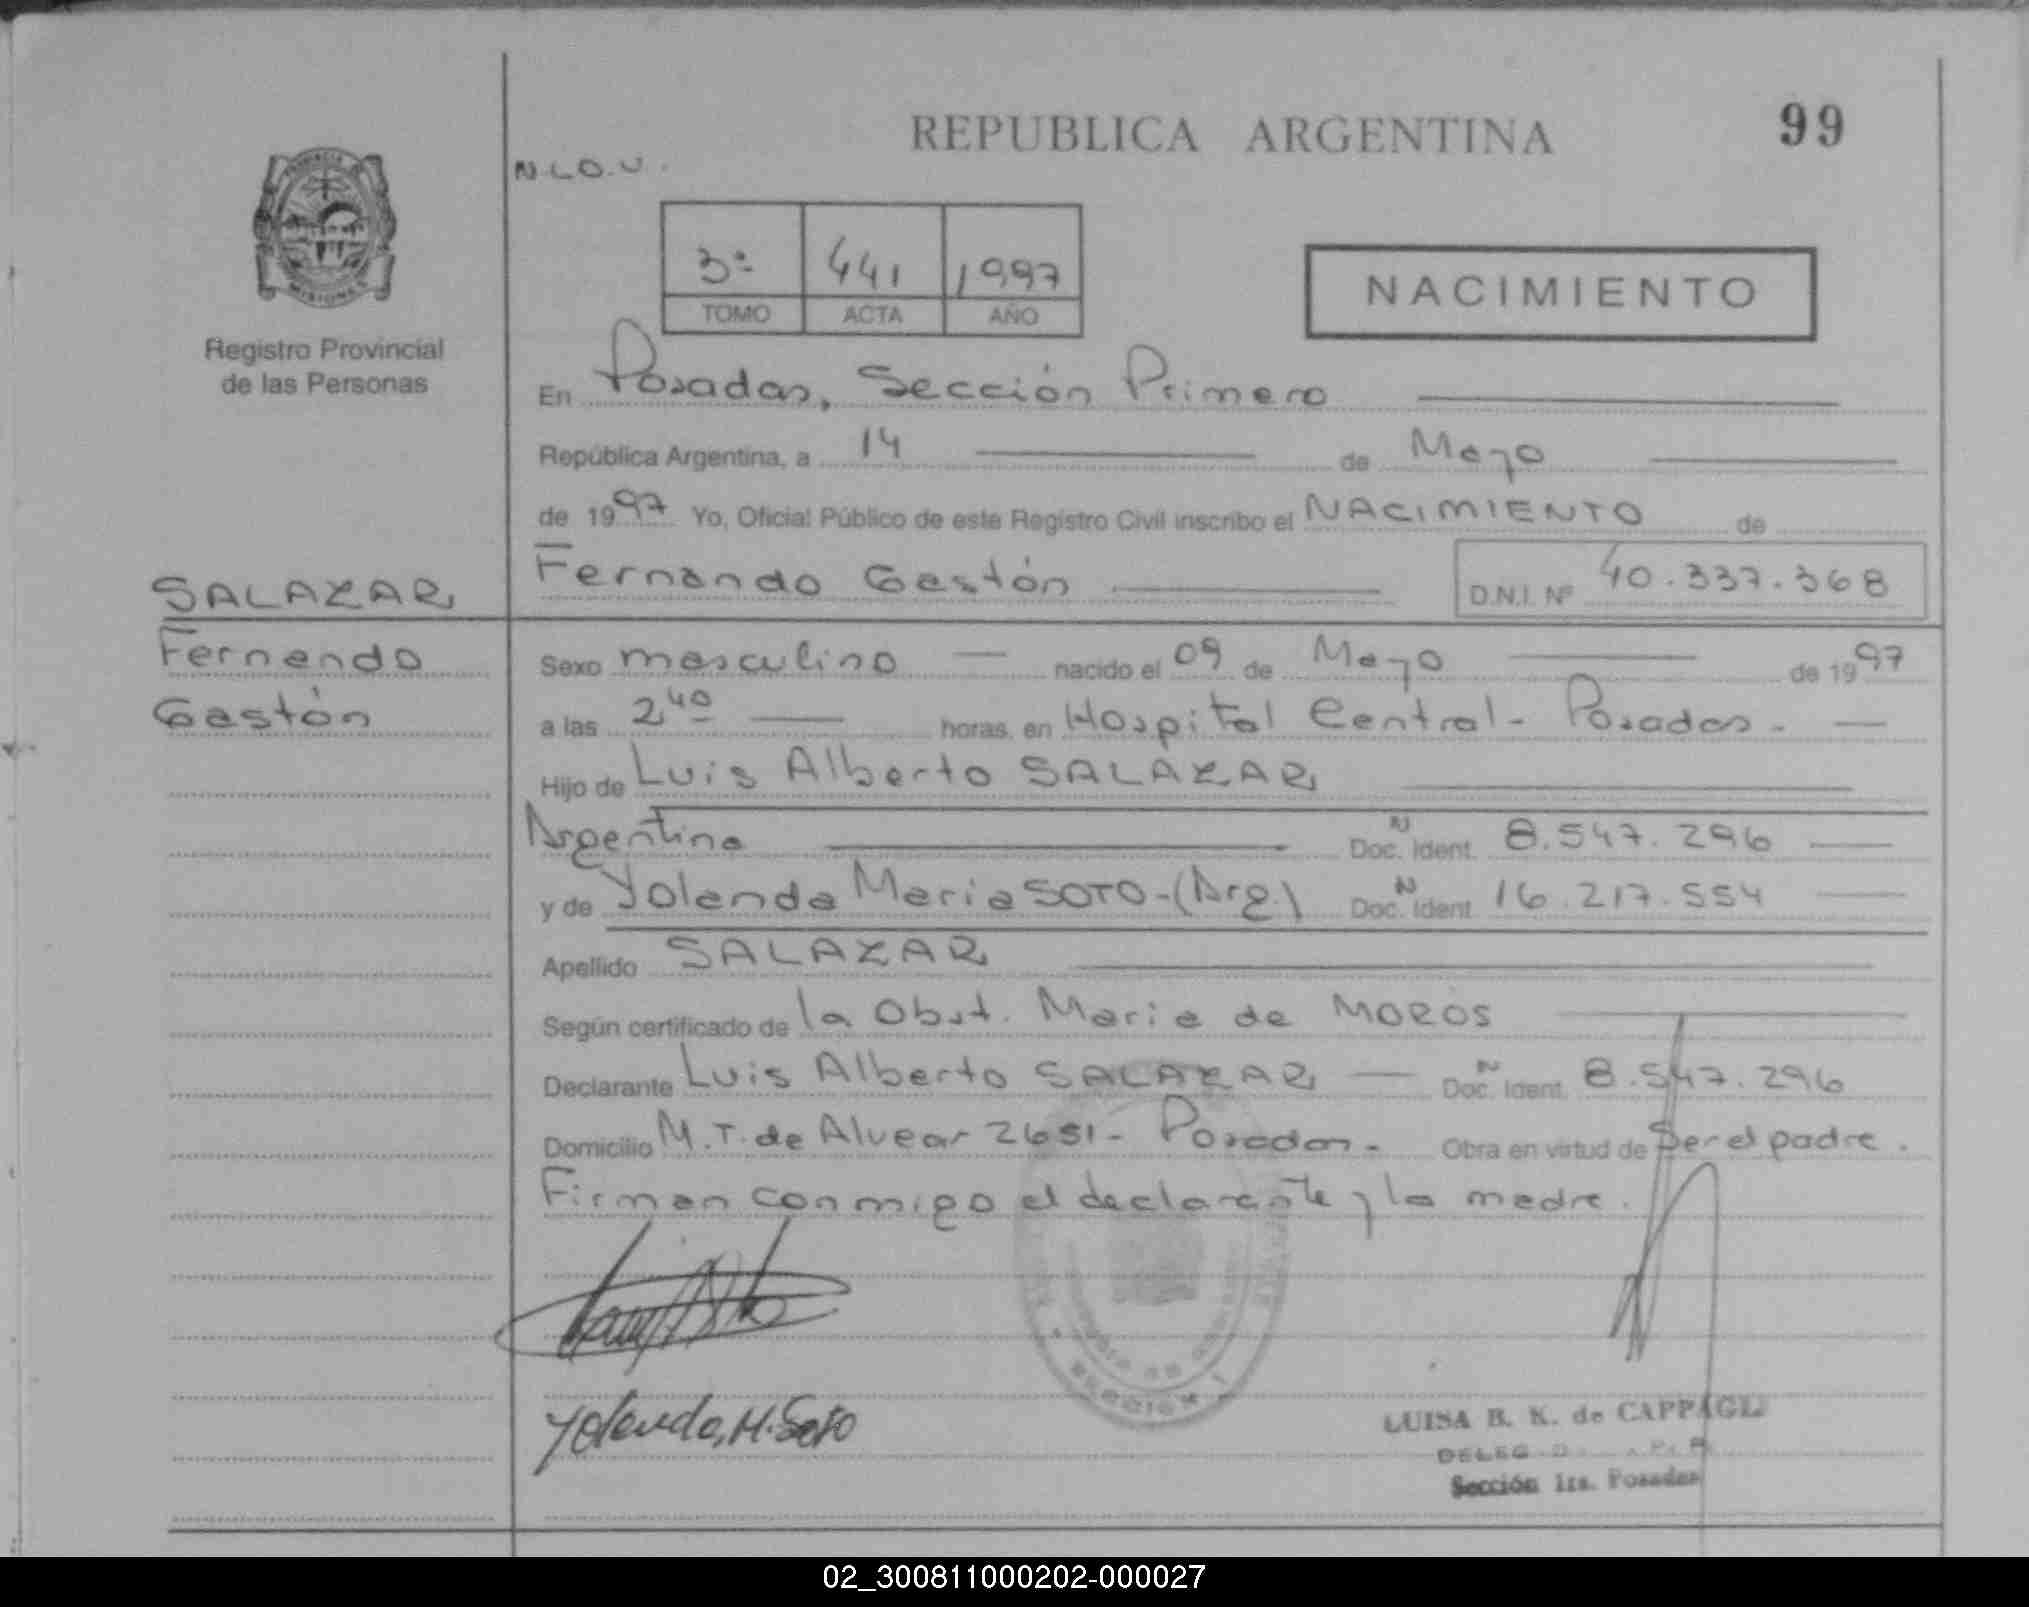 REPUBLICA ARGENTINA
99
N.L.O.U.
PROVINCIA
MISIONES
Registro Provincial
de las Personas
3º 441 1997
TOMO ACTA AÑO
NACIMIENTO
En Posadas, Sección Primera
República Argentina, a 14 de Mayo
de 1997 Yo, Oficial Público de este Registro Civil inscribo el NACIMIENTO de
Fernando Gastón D.N.I. Nº 40.337.368
SALAZAR
Fernando
Gastón
Sexo masculino nacido el 09 de Mayo de 1997
a las 2 40 horas, en Hospital Central - Posadas -
Hijo de Luis Alberto SALAZAR
Argentina Doc. N Ident. 8.547.296
y de Yolanda Maria SOTO - (Arg.) Doc. N Ident. 16.217.554
Apellido SALAZAR
Según certificado de la Obst. Maria de MOROS
Declarante Luis Alberto SALAZAR Doc. N Ident. 8.547.296
Domicilio M. T. de Alvear 2651 - Posadas - Obra en virtud de Ser el padre.
Firman conmigo el declarante y la madre.
Yolanda, M. Soto
LUISA B. K. de CAPPAGLI
Sección 1ra. Posadas
02_300811000202-000027